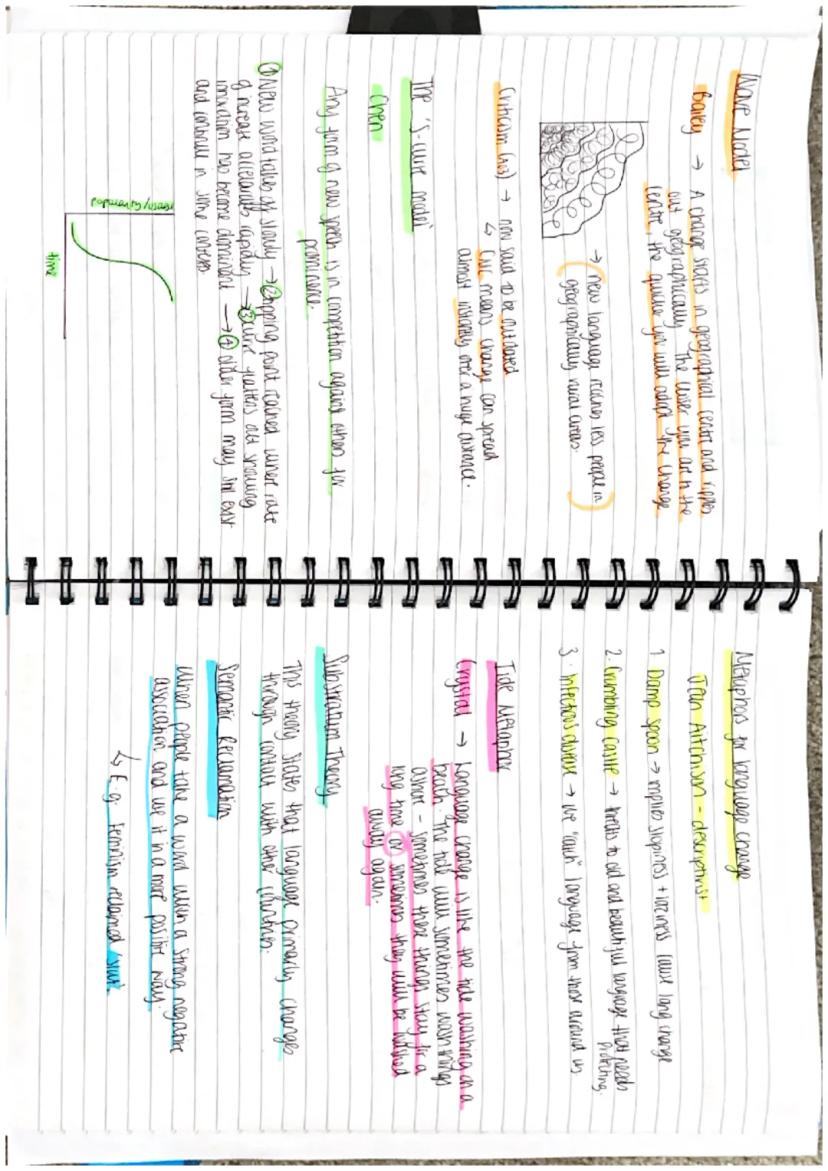 Wave Model
Bailey → A change starts in geographical centre and ripples
out geographically. The closer you are to the
centre, the quicker you will adopt the change
→ (new language reaches less people in
geographically rural areas.)
Criticism → now said to be outdated
↳ CMC means change can spread
almost instantly over a huge distance.
The 'S-curve model'
Chen
Any form of new speech is in competition against others for
prominence.
① New word takes off slowly → ② tipping point reached where rate
of increase accelerates rapidly → ③ curve flattens out showing
innovation has become dominant → ④ older form may still exist
and continue in some contexts
time
Metaphors for language change
Jean Aitchison - descriptivist
1. Damp spoon → implies sloppiness + laziness cause lang change
2. Crumbling castle → threats to old and beautiful language that needs
protecting.
3. Infectious disease → we "catch" language from those around us
Tide Metaphor
Crystal → Language change is like the tide washing on a
beach. The tide will sometimes wash things
ashore - sometimes these things stay for a
long time or sometimes they will be washed
away again.
Substratum Theory
This theory states that language primarily changes
through contact with other
Semantic Reclamation
When people take a word with a strong negative
association and use it in a more positive way.
↳ E.g. Feminism reclaimed 'slut'.